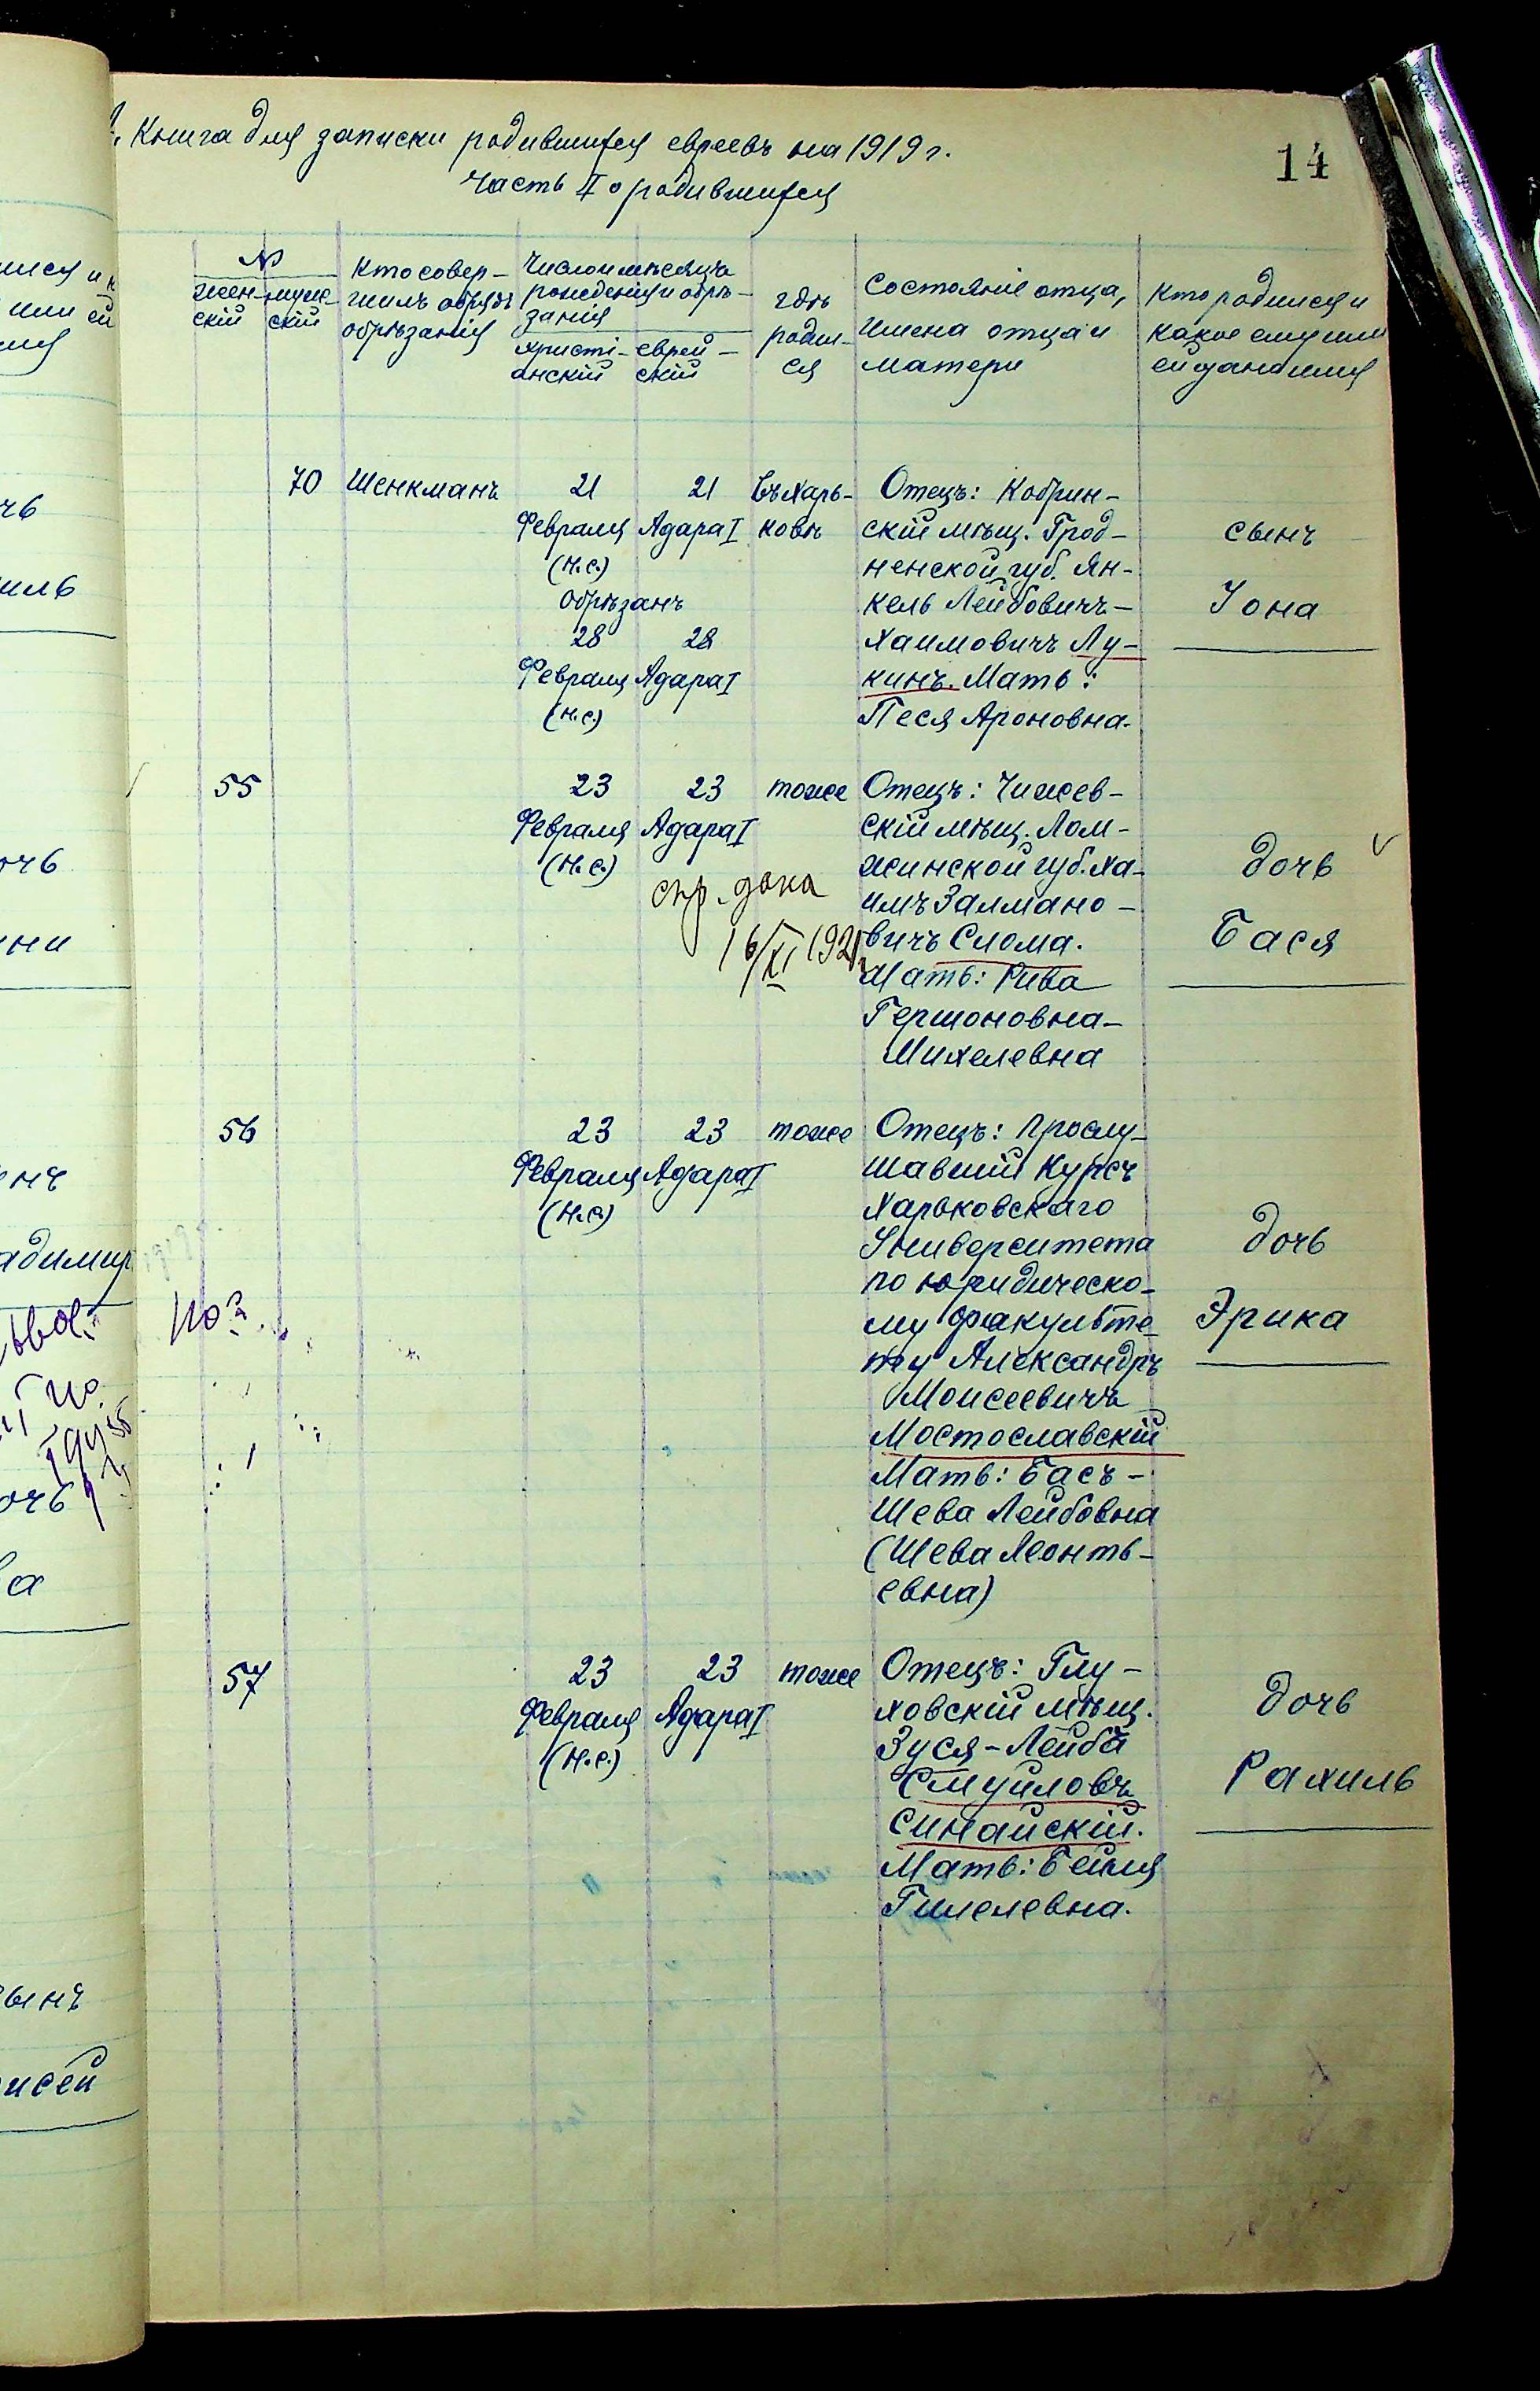 Книга для записки родившихся евреевъ на 1919 г.
14
часть I о родившихся
№
жен-
скій
муж-
скій
Кто совер-
шилъ обрядъ
обрѣзанія
Число и мѣсяцъ
рожденія и обрѣ-
занія
христі-
анскій
еврей-
скій
гдѣ
родил-
ся
Состояніе отца,
имена отца и
матери
Кто родился и
какое ему или
ей дано имя
70
Шенкманъ
21
Февраля
(н.с.)
21
Адара I
Обрѣзанъ
28
Февраля
(н.с.)
28
Адара I
Въ Харь-
ковѣ
Отецъ: Кобрин-
скій мѣщ. Грод-
ненской губ. Ян-
кель Лейбовичъ-
Хаимовичъ Лу-
кинъ. Мать:
Песя Ароновна.
сынъ
Іона
55
23
Февраля
(н.с.)
23
Адара I
тоже
16/XI 1921
Отецъ: Чижев-
скій мѣщ. Лом-
жинской губ. Ха-
имъ Залмано-
вичъ Слома.
Мать: Рива
Гершоновна-
Михелевна
дочь
Бася
56
23
Февраля
(н.с.)
23
Адара I
тоже
Отецъ: Прослу-
шавшій Курсъ
Харьковскаго
Университета
по юридическо-
му факульте-
ту Александръ
Моисеевичъ
Мостославскій
Мать: Басъ-
Шева Лейбовна
(Шева Леонть-
евна)
дочь
Эрика
57
23
Февраля
(н.с.)
23
Адара I
тоже
Отецъ: Глу-
ховскій мѣщ.
Зуся-Лейба
Смуйловъ
Синайскій.
Мать: Бейля
Гилелевна.
дочь
Рахиль